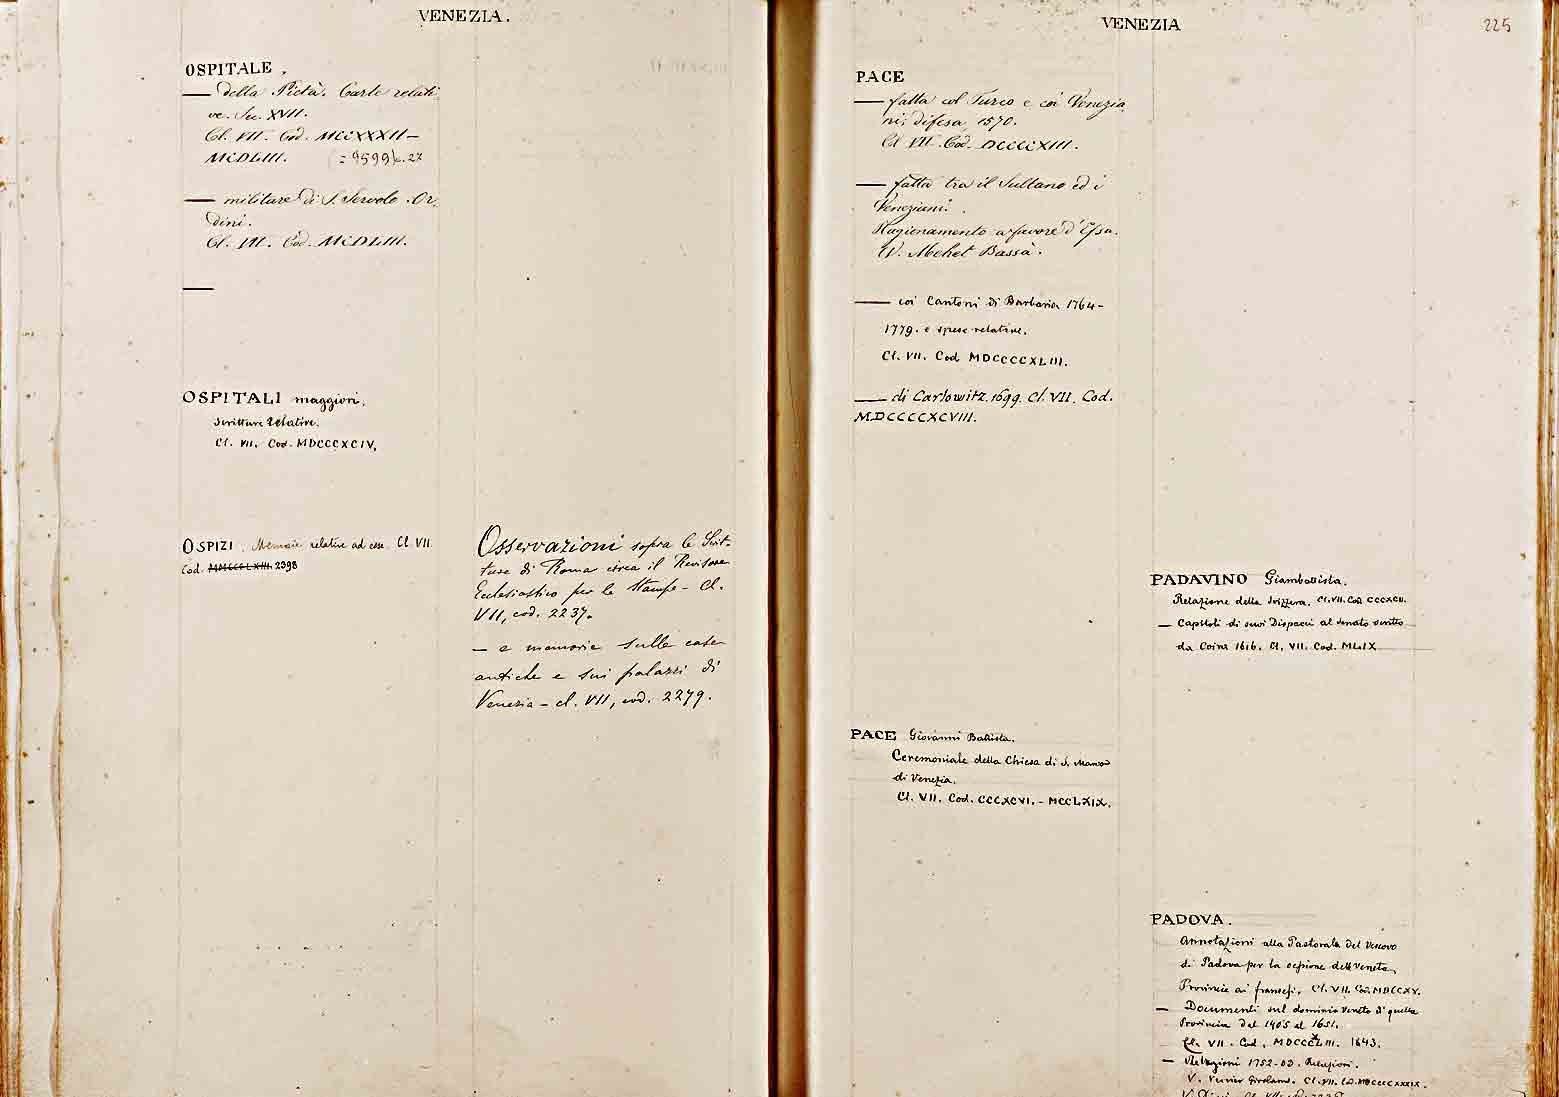 VENEZIA.
OSPITALE.
— della Pietà. Carte relati
ve. Sec. XVII.
Cl. VII. Cod. MCCXXXII —
MCDLIII. (= 9599) c. 27
— militare di S. Servolo. Or
dini.
Cl. VII. Cod. MCDLIII.
—
OSPITALI maggiori.
Scritture relative.
Cl. VII. Cod. MDCCCXCIV.
OSPIZI. Memorie relative ad esse. Cl. VII.
Cod. 2398
Osservazioni sopra le Scrit-
ture di Roma circa il Revisore
Ecclesiastico per le Stampe - Cl.
VII, cod. 2237.
— e memorie sulle case
antiche e sui palazzi di
Venezia - cl. VII, cod. 2279.
VENEZIA
225
PACE
— fatta col Turco e coi Venezia
ni; difesa, 1570.
Cl. VII. Cod. DCCCCXIII.
— fatta tra il Sultano ed i
Veneziani.
Ragionamento a favore d'Essa.
V. Mehet Bassà.
— coi Cantoni di Barbaria 1764-
1779. e spese relative.
Cl. VII. Cod MDCCCCXLIII.
— di Carlowitz. 1699. Cl. VII. Cod.
MDCCCCXCVIII.
PACE Giovanni Battista.
Ceremoniale della Chiesa di S. Marco
di Venezia.
Cl. VII. Cod. CCCXCVI. - MCCLXIX.
PADAVINO Giambattista.
Relazione della Svizzera. Cl. VII. Cod. CCCXCII.
— Capitoli di suoi Dispacci al Senato scritto
da Coira 1616. Cl. VII. Cod. MLIX
PADOVA.
Annotazioni alla Pastorale del Vescovo
di Padova per la cessione delle Venete
Provincie ai francesi. Cl. VII. Cod. MDCCXV.
— Documenti sul dominio Veneto di quella
Provincia dal 1405 al 1651.
Cl. VII. Cod. MDCCCLIII. 1843.
— Relazioni 1752-53. Relazioni.
V. Venier Girolamo. Cl. VII. Cod. MDCCCCXXXIX.